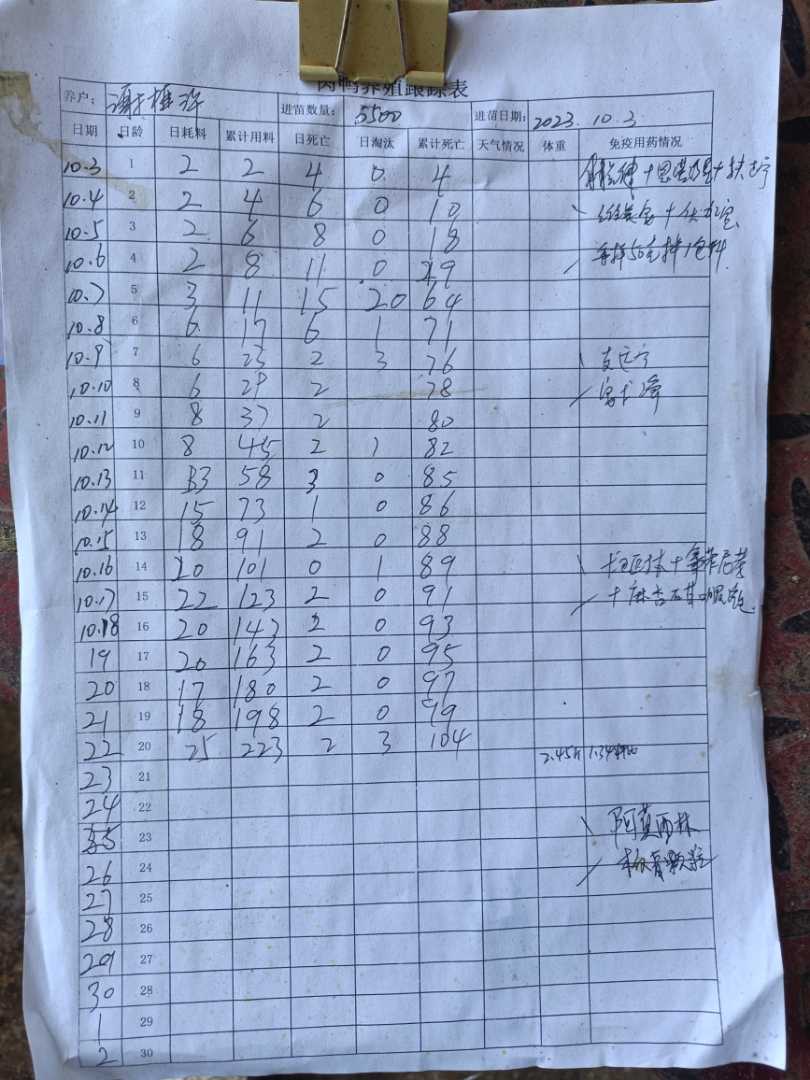 肉鸭养殖跟踪表
养户： 进苗数量： 5500 进苗日期： 2023. 10. 3
日期 日龄 日耗料 累计用料 日死亡 日淘汰 累计死亡 天气情况 体重 免疫用药情况
10.3 1 2 2 4 0 4
10.4 2 2 4 6 0 10
10.5 3 2 6 8 0 18
10.6 4 2 8 11 0 29
10.7 5 3 11 15 20 64
10.8 6 6 17 6 1 71
10.9 7 6 23 2 3 76
10.10 8 6 29 2 78
10.11 9 8 37 2 80
10.12 10 8 45 2 1 82
10.13 11 13 58 3 0 85
10.14 12 15 73 1 0 86
10.15 13 18 91 2 0 88
10.16 14 20 101 0 1 89
10.17 15 22 123 2 0 91
10.18 16 20 143 2 0 93
19 17 20 163 2 0 95
20 18 17 180 2 0 97
21 19 18 198 2 0 99
22 20 25 223 2 3 104 2.45斤
23 21
24 22
25 23 阿莫西林
26 24 颗粒
27 25
28 26
29 27
30 28
1 29
2 30